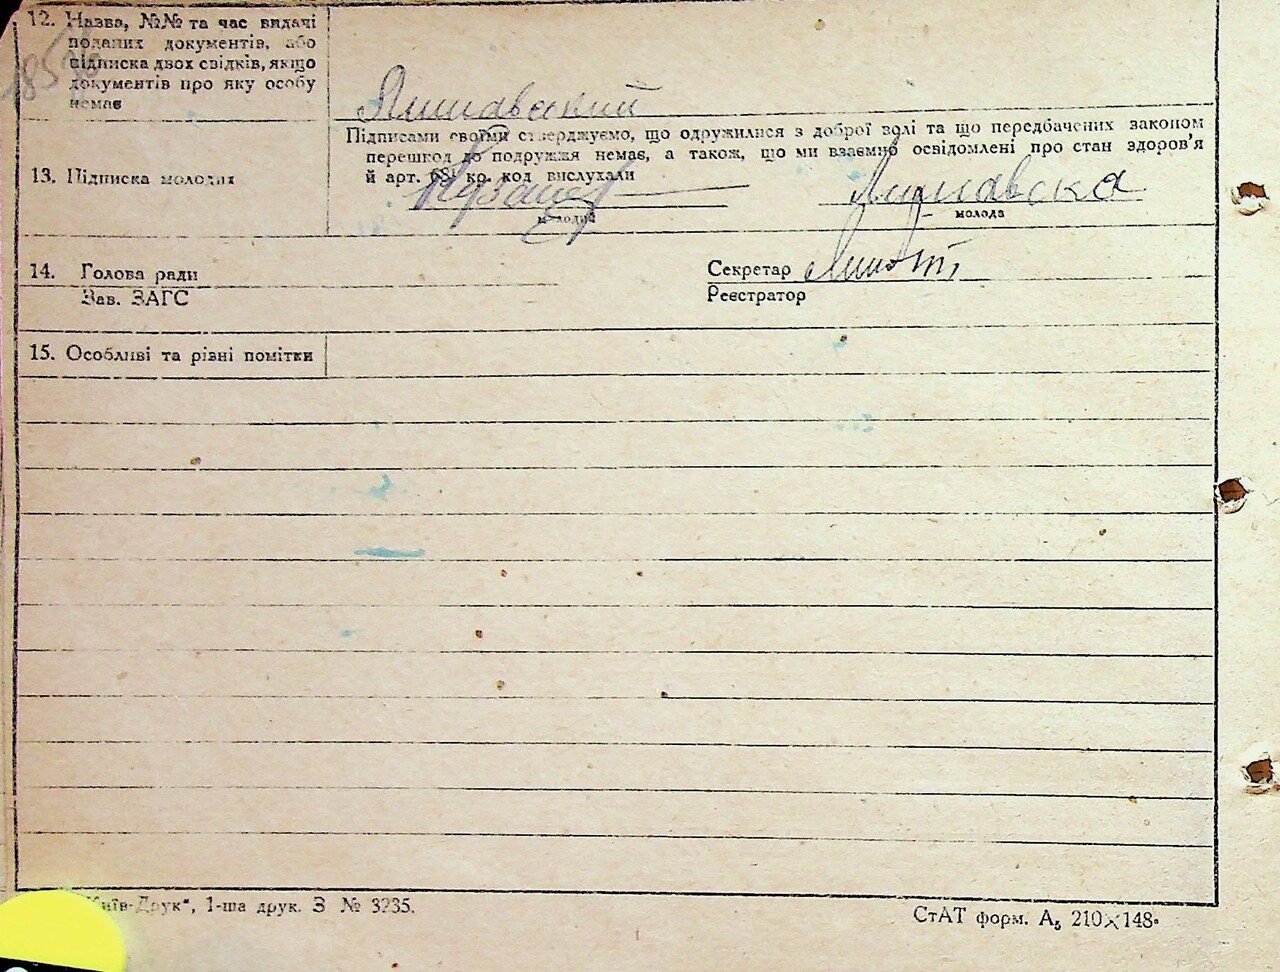 12. Назва, №№ та час видачі
поданих документів, або
підписка двох свідків, якщо
документів про яку особу
немає
Підписами своїми стверджуємо, що одружилися з доброї волі та що передбачених законом
перешкод до подружжя немає, а також, що ми взаємно освідомлені про стан здоров'я
й арт. 68¹ кр. код вислухали
13. Підписка молодих
молодий
молода
14. Голова ради
Секретар
Зав. ЗАГС
Реєстратор
15. Особливі та різні помітки
Київ-Друк", 1-ша друк. З № 3235.
СтАТ форм. А₅ 210×148.